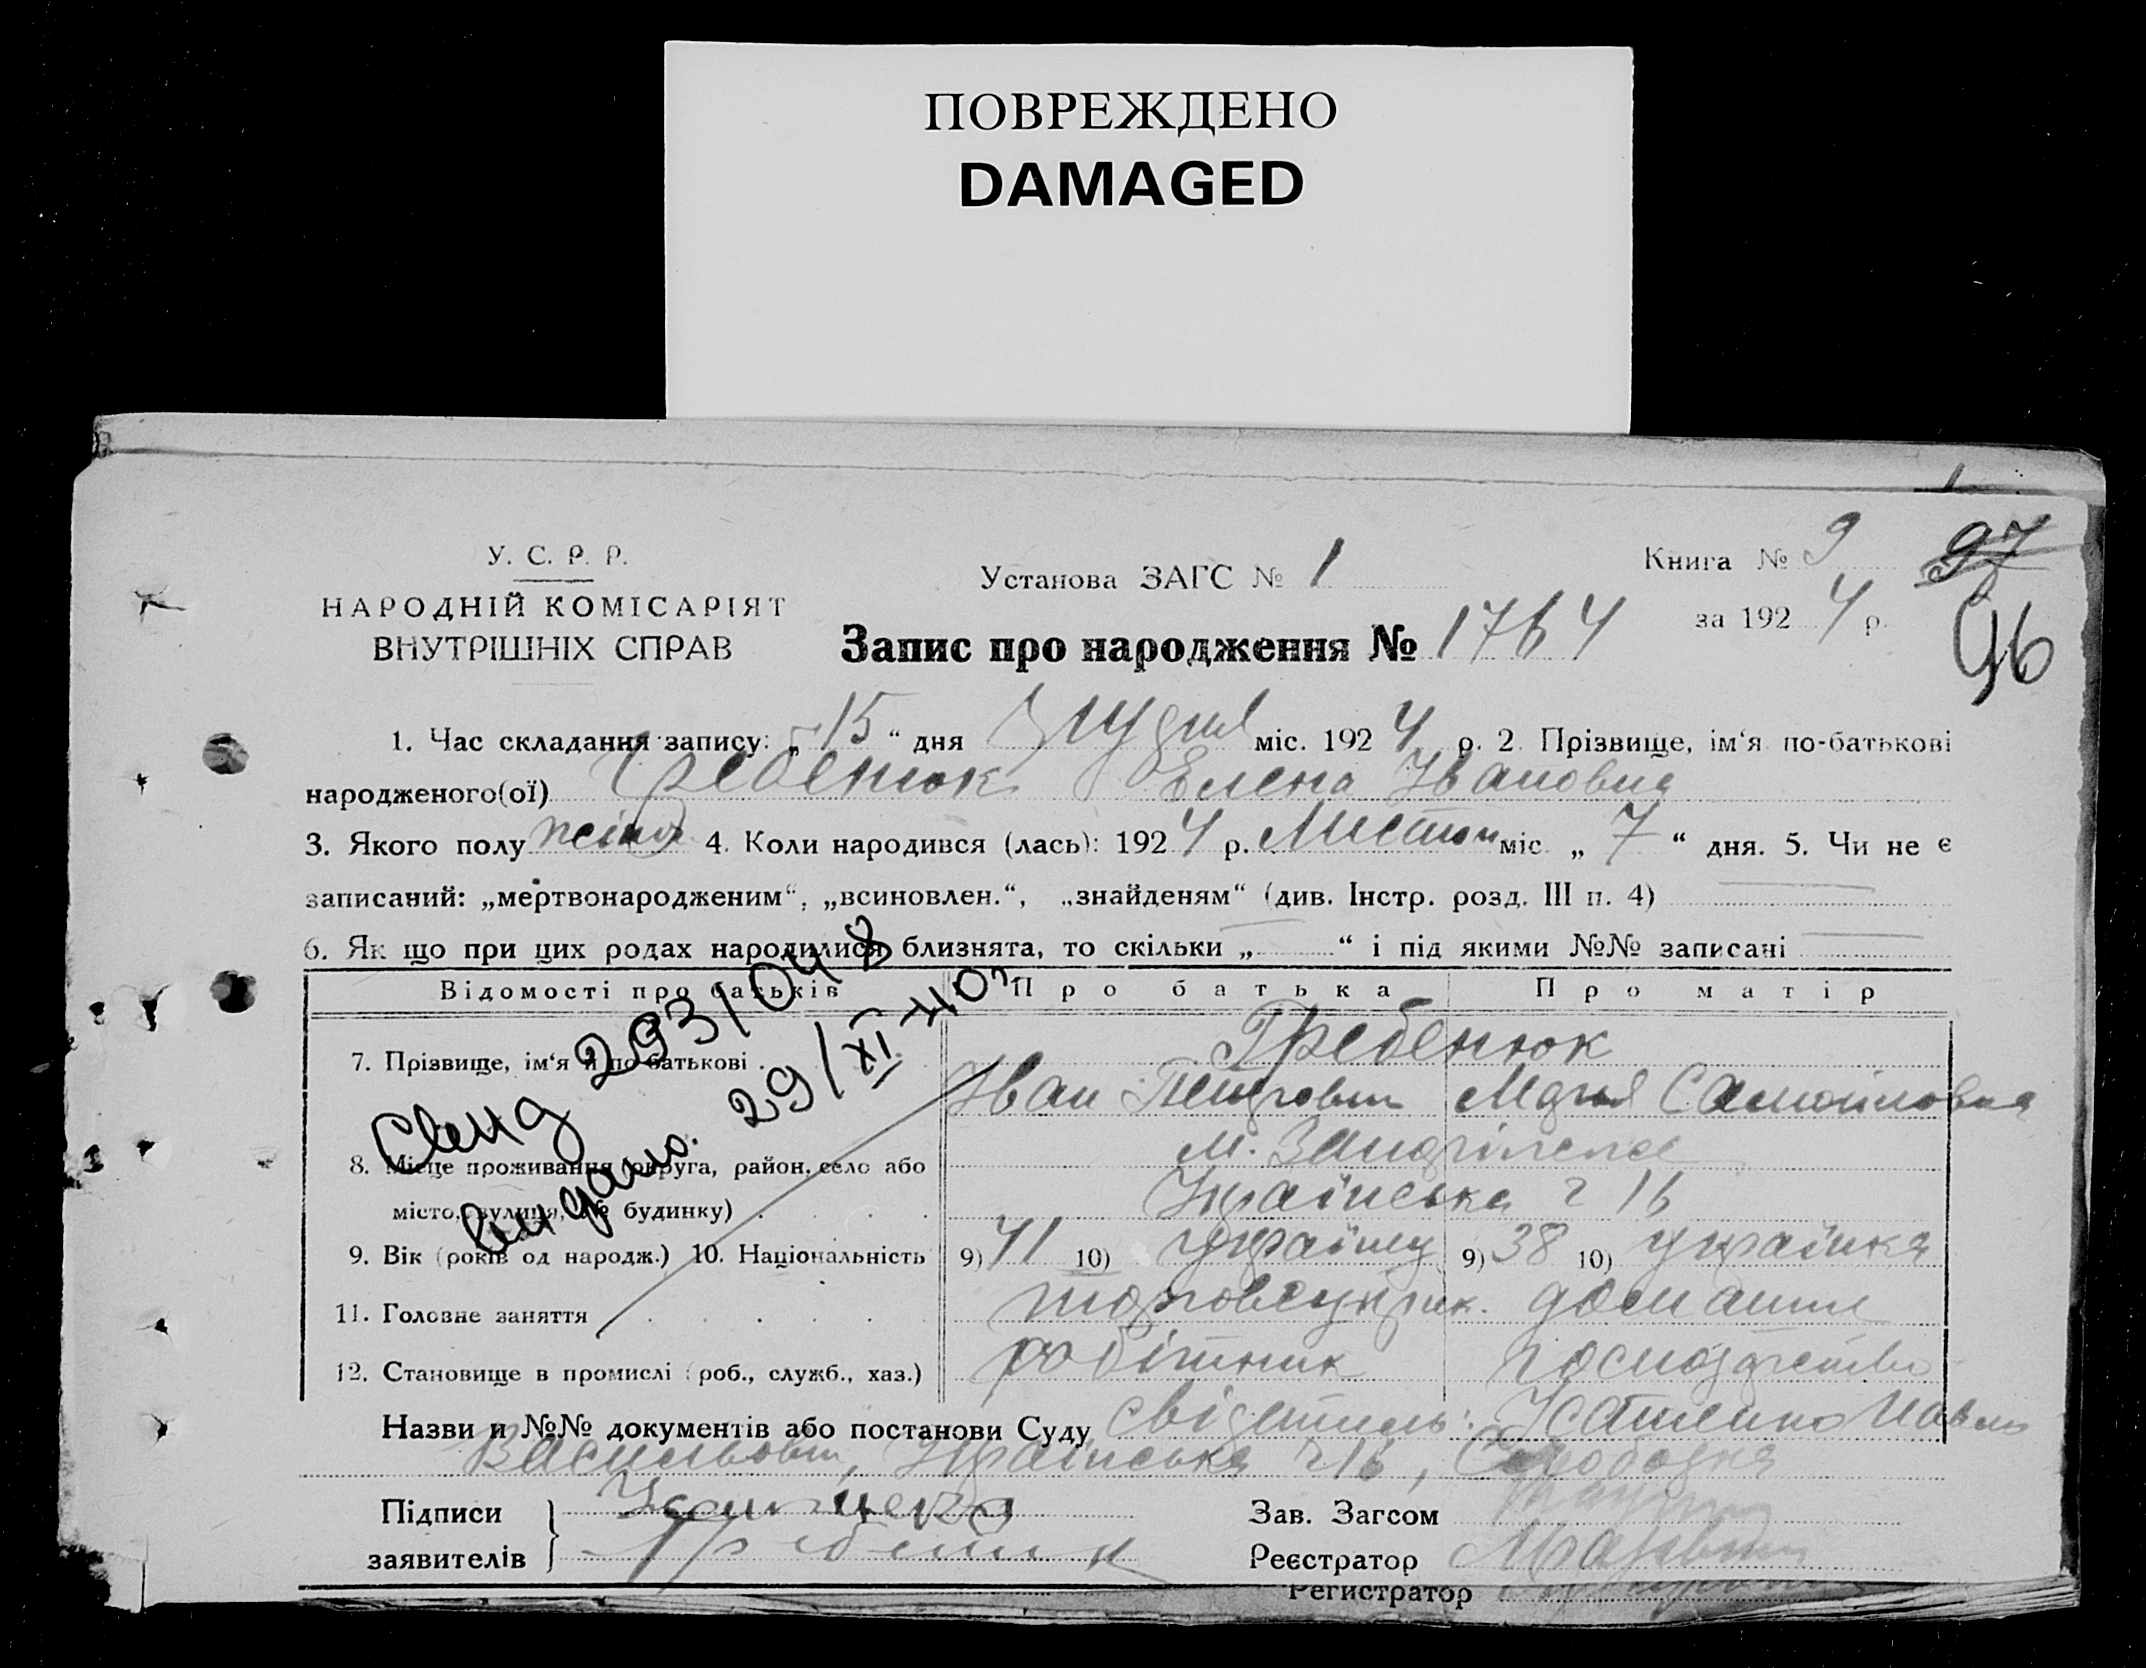 ПОВРЕЖДЕНО
DAMAGED
У. С. Р. Р.
НАРОДНІЙ КОМІСАРІЯТ
ВНУТРІШНІХ СПРАВ
Установа ЗАГС № 1
Книга № 9
97
за 1924 р.
96
Запис про народження № 1764
1. Час складання запису: „15“ дня Грудня міс. 1924 р. 2. Прізвище, ім‘я по-батькові
народженого(ої) Гребенюк Елена Івановна
3. Якого полу жіноч 4. Коли народився (лась): 1924 р. Листоп міс. „7“ дня. 5. Чи не є
записаний: „мертвонародженим“, „всиновлен.“, „знайденям“ (див. Інстр. розд. III п. 4)
6. Як що при цих родах народилися близнята, то скільки „ “ і під якими №№ записані
Відомості про батьків Про батька Про матір
7. Прізвище, ім‘я й по-батькові Гребенюк
Іван Петрович Марія Самойловна
8. Місце проживання (округа, район, село або
місто, вулиця, № будинку)
Українська ч 16
9. Вік (років од народж.) 10. Національність 9) 41 10) українц 9) 38 10) українка
11. Головне заняття домашнє
12. Становище в промислі (роб., служб., хаз.) робітник господарство
293/048
Выдано. 29/XI-40г
Назви и №№ документів або постанови Суду свідитель:
Васильович, Українська ч 16, Слободка
Підписи
заявителів
Гребенюк
Зав. Загсом
Реєстратор
Регистратор